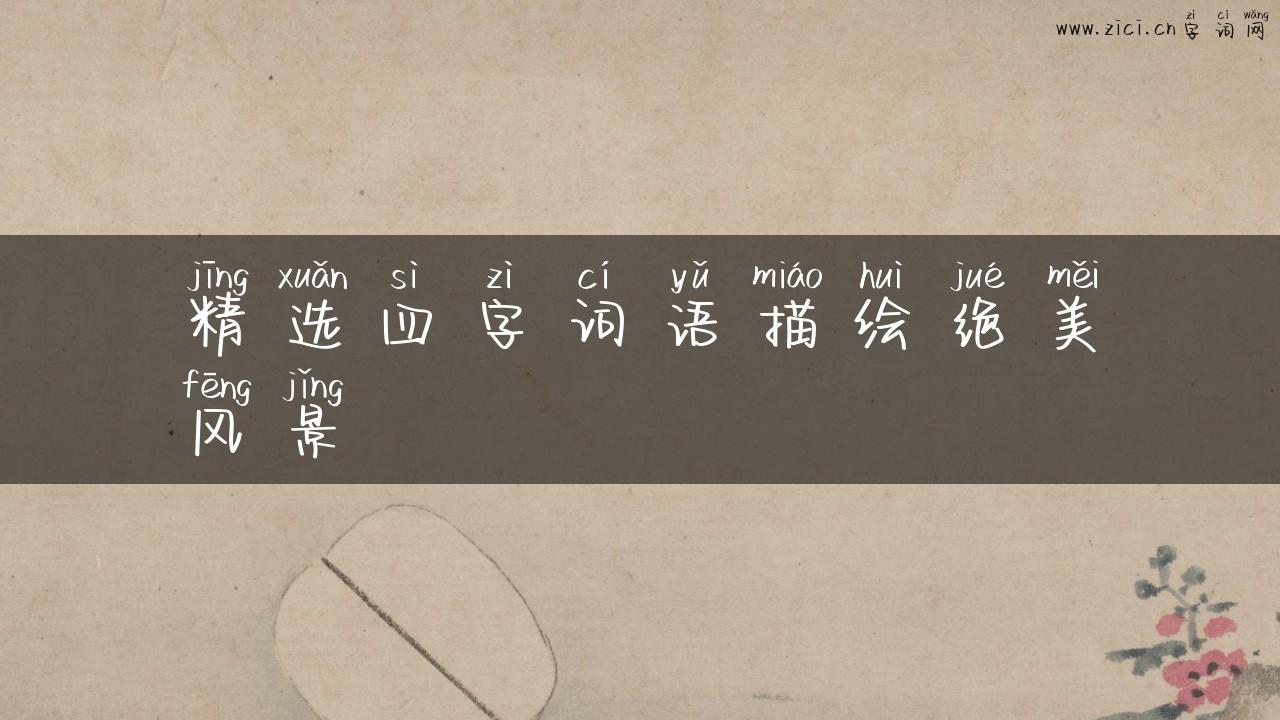 zì cí wǎng
www.zici.cn字词网
jīng xuǎn sì zì cí yǔ miáo huì jué měi
精选四字词语描绘绝美
fēng jǐng
风景